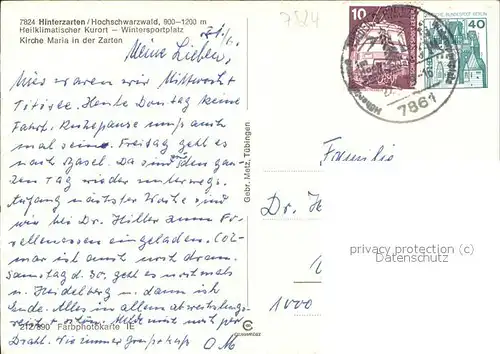 7824 Hinterzarten / Hochschwarzwald, 900–1200 m
Heilklimatischer Kurort – Wintersportplatz
Kirche Maria in der Zarten
7824
Meine Lieben,
Nun waren wir Mittwoch +
Titisee. Heute Donstag keine
Fahrt. Ruhepause muß auch
mal sein. Freitag geht es
nach Basel. Da sind wir den gan-
zen Tag wieder unterwegs.
Anfang nächster Woche sind
wir bei Dr. Hiller zum Fo-
rellenessen eingeladen. Col-
mar ist auch noch dran.
Samstag d. 30. geht es nochmals
n. Heidelberg u. dann ist
Ende. Alles in allem abwechslungs-
reich + schön.
212/890 Farbphotokarte TE
Gebr. Metz, Tübingen
10
DEUTSCHE BUNDESPOST BERLIN
40
7861
Familie
Dr. H
1000
privacy protection
Datenschutz